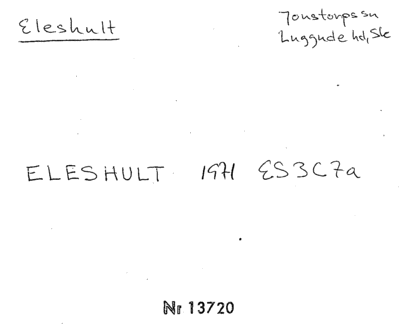 Eleshult
Jonstorps sn
Luggude hd, Sk
ELESHULT 1971 ES3C7a
Nr 13720